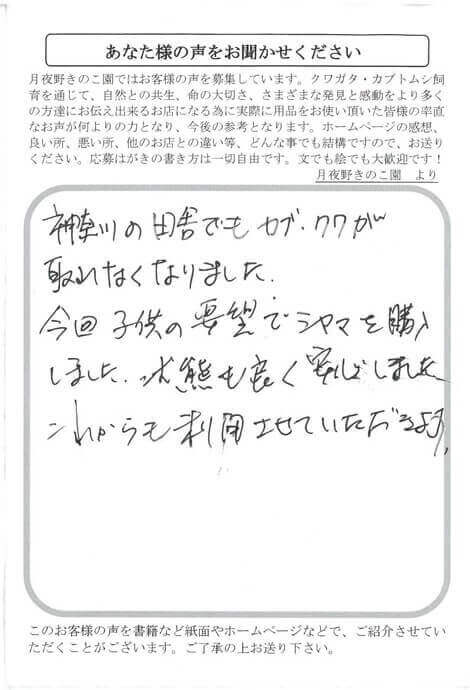 あなた様の声をお聞かせください
月夜野きのこ園ではお客様の声を募集しています。クワガタ・カブトムシ飼
育を通じて、自然との共生、命の大切さ、さまざまな発見と感動をより多く
の方達にお伝え出来るお店になる為に実際に用品をお使い頂いた皆様の率直
なお声が何よりの力となり、今後の参考となります。ホームページの感想、
良い所、悪い所、他のお店との違い等、どんな事でも結構ですので、お送り
ください。応募はがきの書き方は一切自由です。文でも絵でも大歓迎です！
月夜野きのこ園　より
神奈川の田舎でもカブ・クワが
取れなくなりました.
今回子供の要望でシヤマを購入
しました. 状態も良く安心しました
これからも利用させていただきます,
このお客様の声を書籍など紙面やホームページなどで、ご紹介させてい
ただくことがございます。ご了承の上お送り下さい。